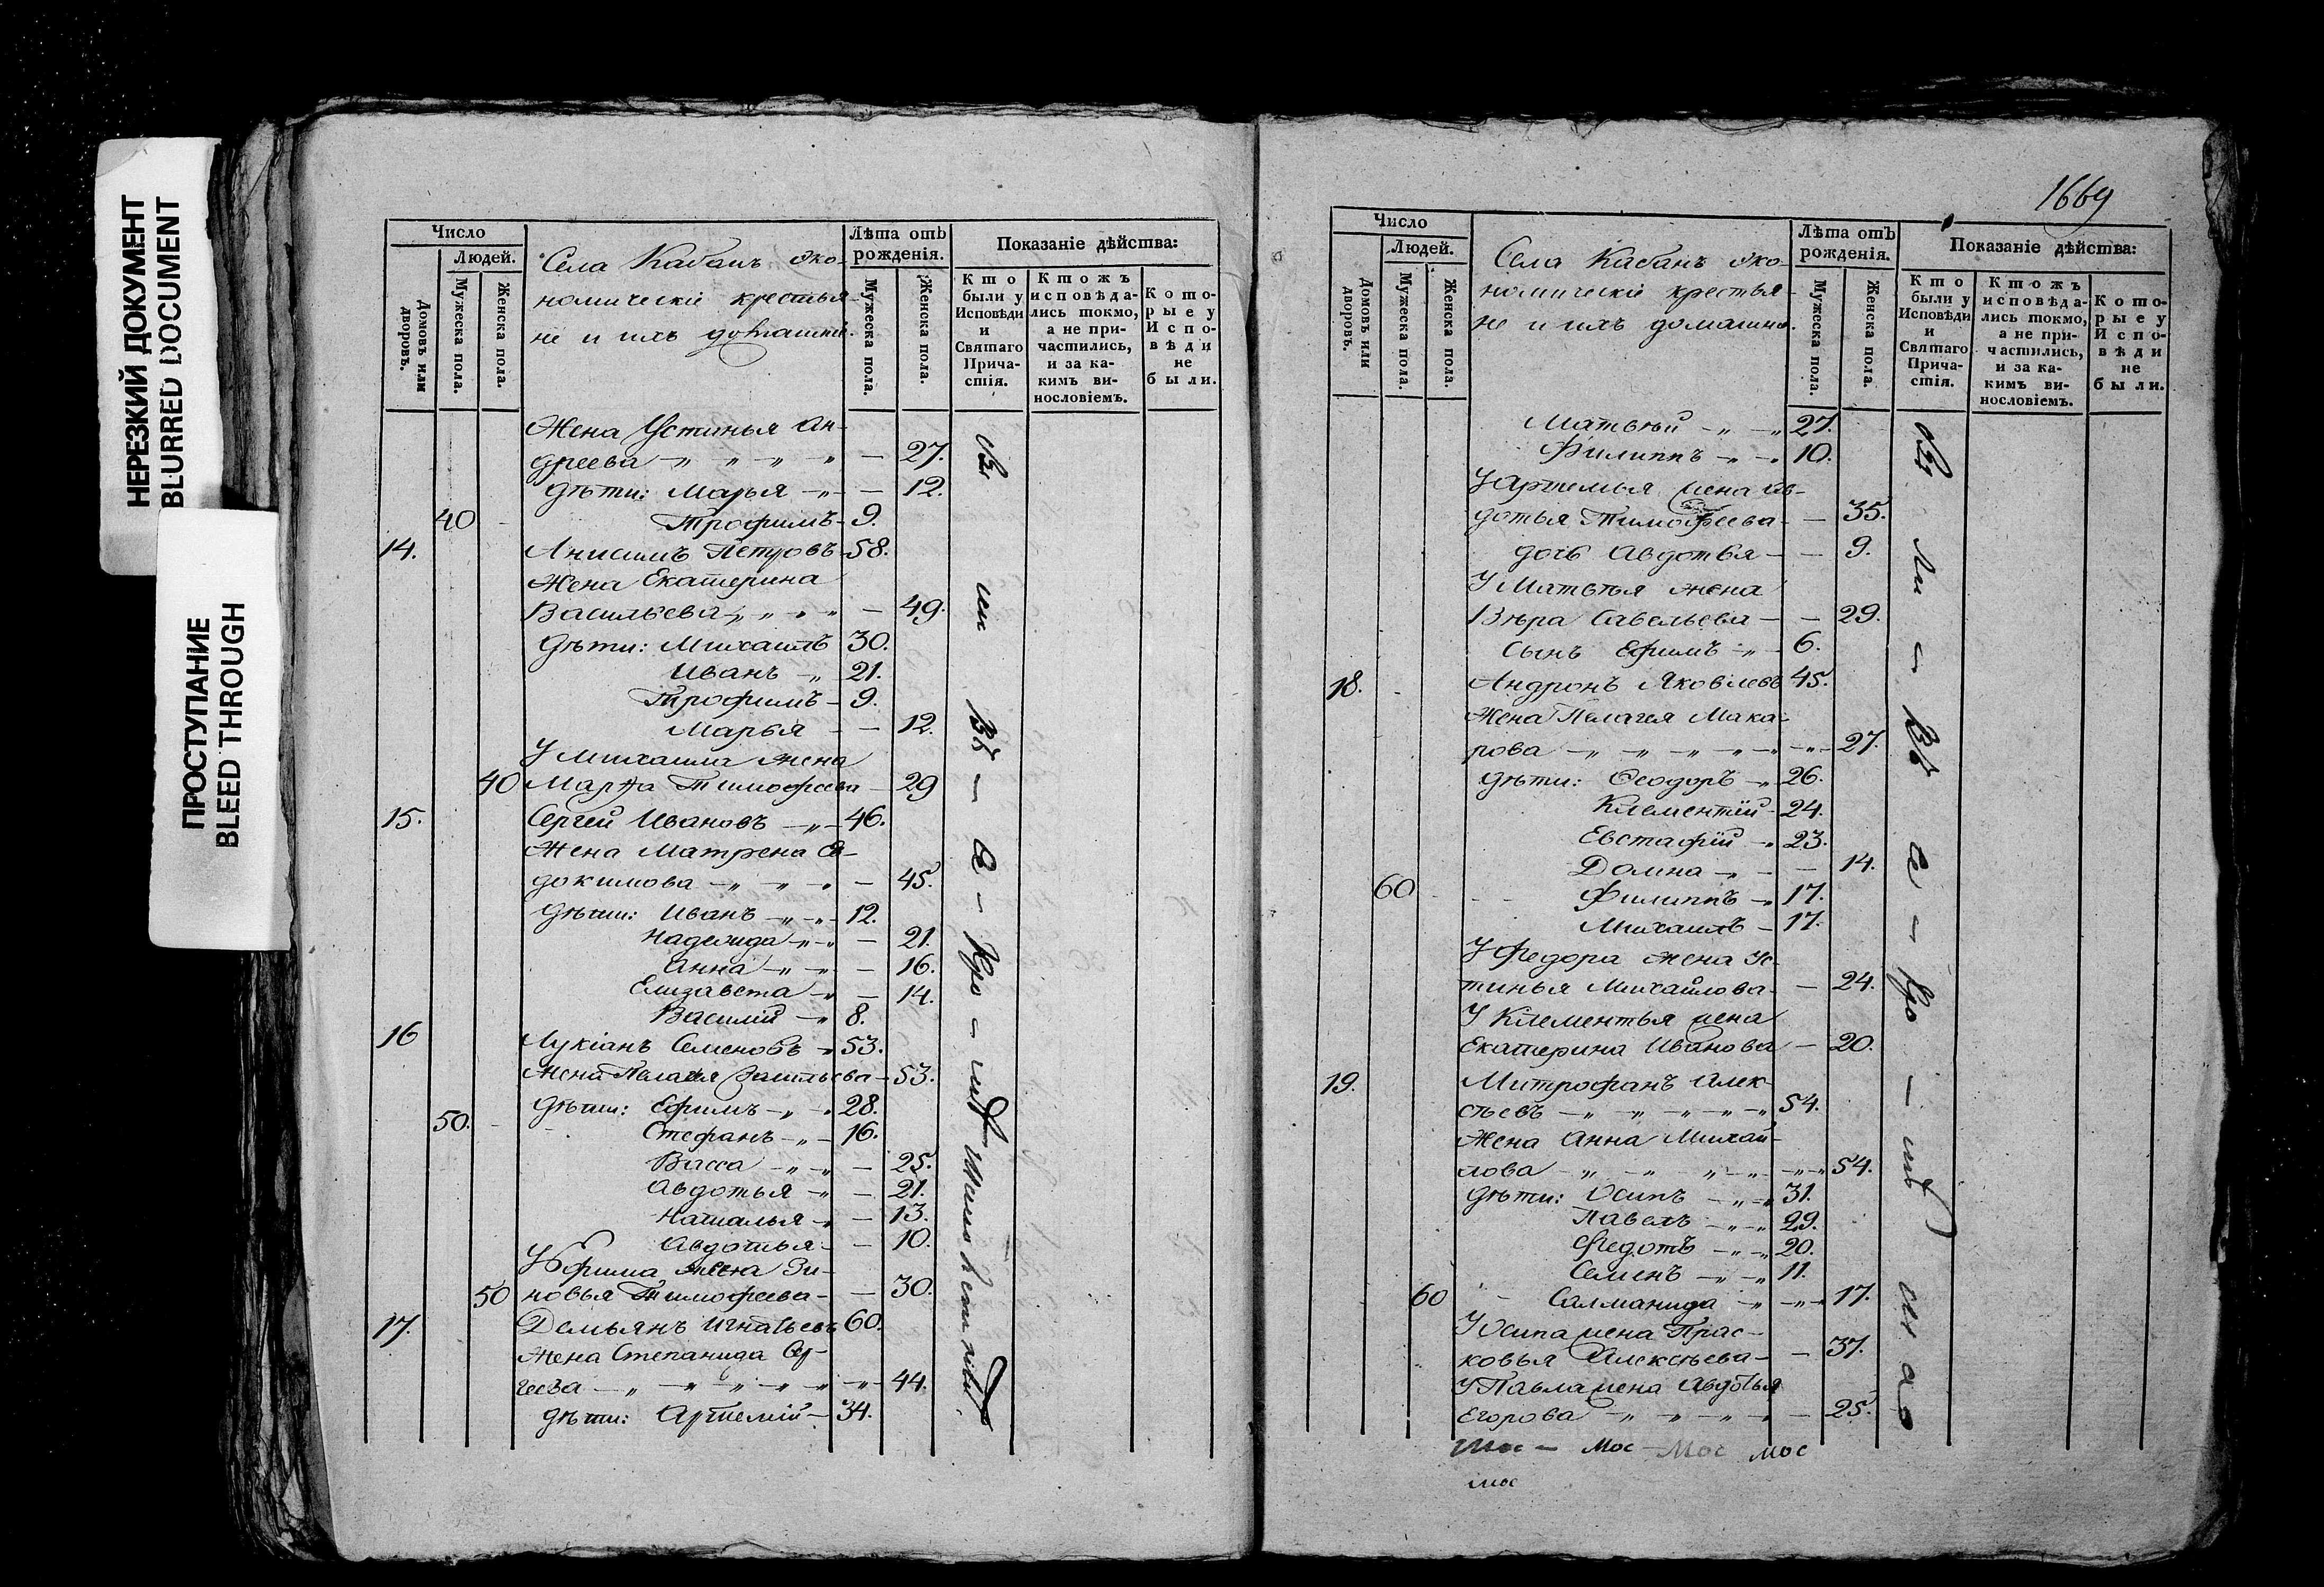 НЕРЕЗКИЙ ДОКУМЕНТ
BLURRED DOCUMENT
ПРОСТУПАНИЕ
BLEED THROUGH
Число
Людей.
Домовъ или дворовъ.
Мужеска пола.
Женска пола.
Села Кабанъ эко-
номическіе крестья-
не и ихъ домашніе.
Лѣта отъ
рожденія.
Мужеска пола.
Женска пола.
Показаніе дѣйства:
Кто
были у
Исповѣди
и
Святаго
Прича-
стія.
Ктожъ
исповѣда-
лись токмо,
а не при-
частились,
и за ка-
кимъ ви-
нословіемъ.
Кото-
рые у
Испо-
вѣди
не
были.
Жена Устинья Ан-
дреева — 27.
Дѣти: Марья — 12.
40 Трофимъ — 9.
14. Анисимъ Петровъ 58.
Жена Екатерина
Васильева — 49.
Дѣти: Михаилъ 30.
Иванъ 21.
Трофимъ — 9.
Марья — 12.
У Михаила жена
40 Марѳа Тимофеева — 29
15. Сергей Ивановъ — 46.
Жена Матрена Ев-
докимова — 45.
Дѣти: Иванъ — 12.
Надежда — 21.
Анна — 16.
Елизавета — 14.
Василій — 8.
16 Лукіанъ Семеновъ 53.
Жена Пелагея Васильева — 53.
Дѣти: Ефимъ — 28.
50. Стефанъ — 16.
Васса — 25.
Авдотья — 21.
Наталья — 13.
Авдотья — 10.
У Ефима жена Зи-
50 новья Тимофеева — 30.
17. Демьянъ Игнатьевъ 60.
Жена Степанида Сер-
геева — 44.
Дѣти: Артемій — 34.
1669
Число
Людей.
Домовъ или дворовъ.
Мужеска пола.
Женска пола.
Села Кабанъ эко-
номическіе крестья-
не и ихъ домашніе.
Лѣта отъ
рожденія.
Мужеска пола.
Женска пола.
Показаніе дѣйства:
Кто
были у
Исповѣди
и
Святаго
Прича-
стія.
Ктожъ
исповѣда-
лись токмо,
а не при-
частились,
и за ка-
кимъ ви-
нословіемъ.
Кото-
рые у
Испо-
вѣди
не
были.
Матвѣй — 27.
Филиппъ — 10.
У Артемья жена Ав-
дотья Тимофеева — 35.
дочь Авдотья — 9.
У Матвѣя жена
Вѣра Савельева — 29.
Сынъ Ефимъ — 6.
18. Андронъ Яковлевъ 45.
Жена Пелагея Мака-
рова — 27.
Дѣти: Ѳеодоръ — 26.
Клементій 24.
Евстафій — 23.
Домна — 14.
60 Филиппъ — 17.
Михаилъ — 17.
У Федора жена Ус-
тинья Михайлова — 24.
У Клементья жена
Екатерина Иванова — 20.
19. Митрофанъ Алек-
сѣевъ — 54.
Жена Анна Михай-
лова — 54.
Дѣти: Осипъ — 31.
Павелъ — 29.
Федотъ — 20.
Семенъ — 11.
60 Соломанида — 17.
У Осипа жена Прас-
ковья Алексѣева — 37.
У Павла жена Авдотья
Егорова — 25.
Мос — Мос — Мос мос
мос